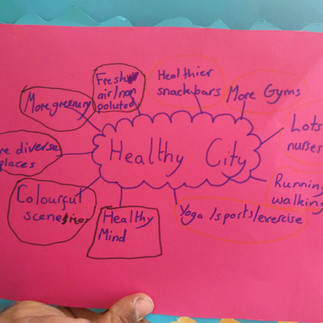 Fresh
air/non
poluted
Healthier
snackbars
More Gyms
More greenery
Lots
nurses
re diverse
places
Healthy City
Running
walking
Colourful
Healthy
Mind
Yoga /sports/exercise